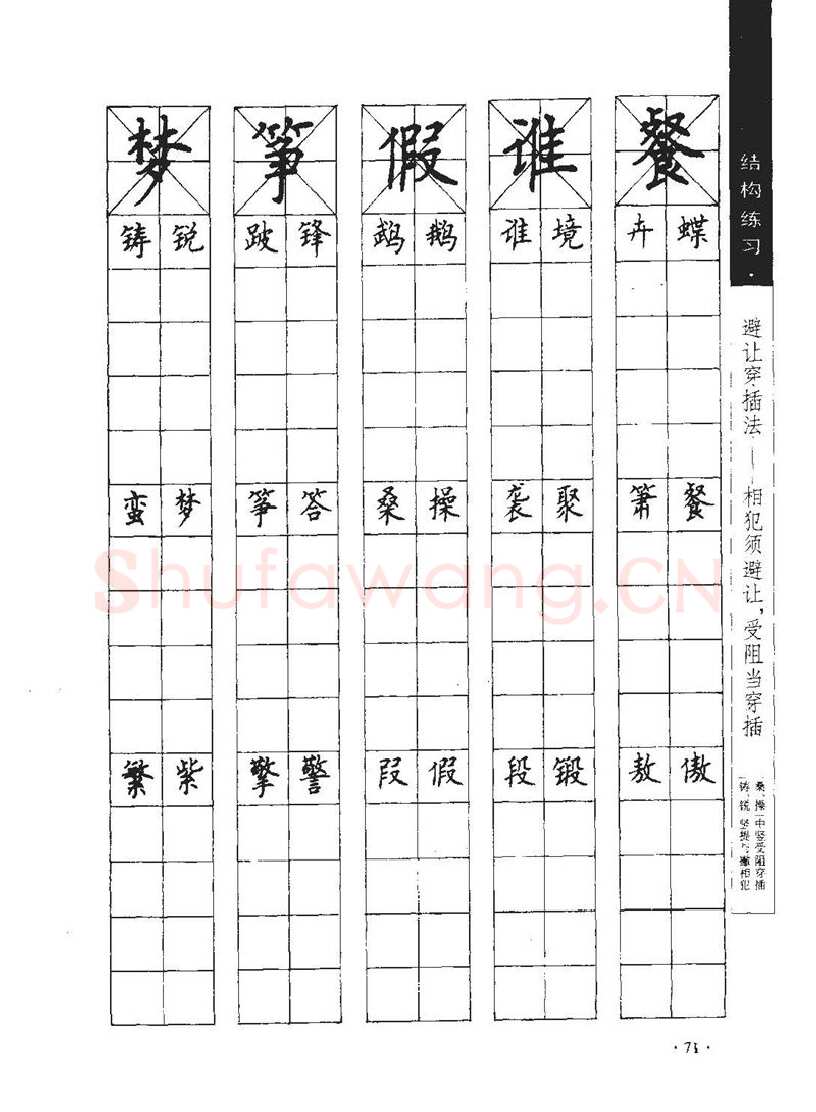 结构练习·
避让穿插法——相犯须避让，受阻当穿插
桑、操一中竖受阻穿插
铸、锐 竖提与撇相犯
餐
卉 蝶
箫 餐
敖 傲
谁
谁 境
袭 聚
段 锻
假
鹉 鹅
桑 操
叚 假
筝
跛 锋
筝 答
擎 警
梦
铸 锐
蛮 梦
繁 紫
Shufawang.CN